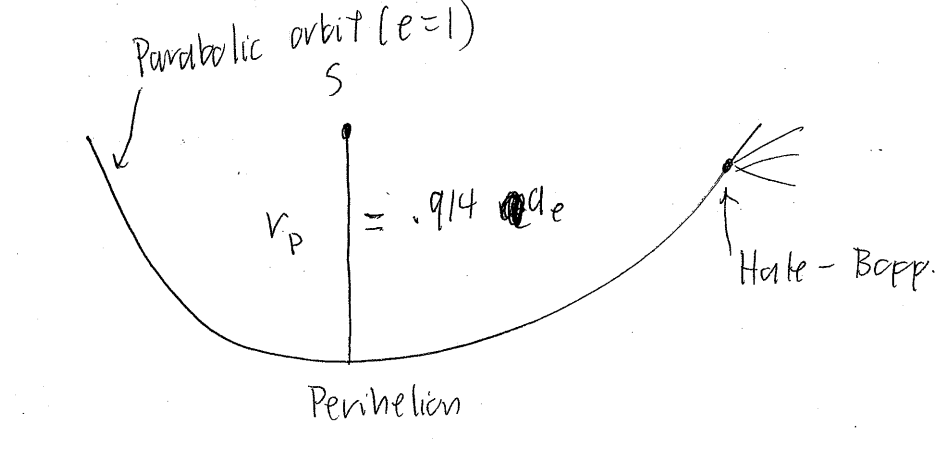 Parabolic orbit (e=1)
S
r_p = .914 a_e
Hale - Bopp.
Perihelion